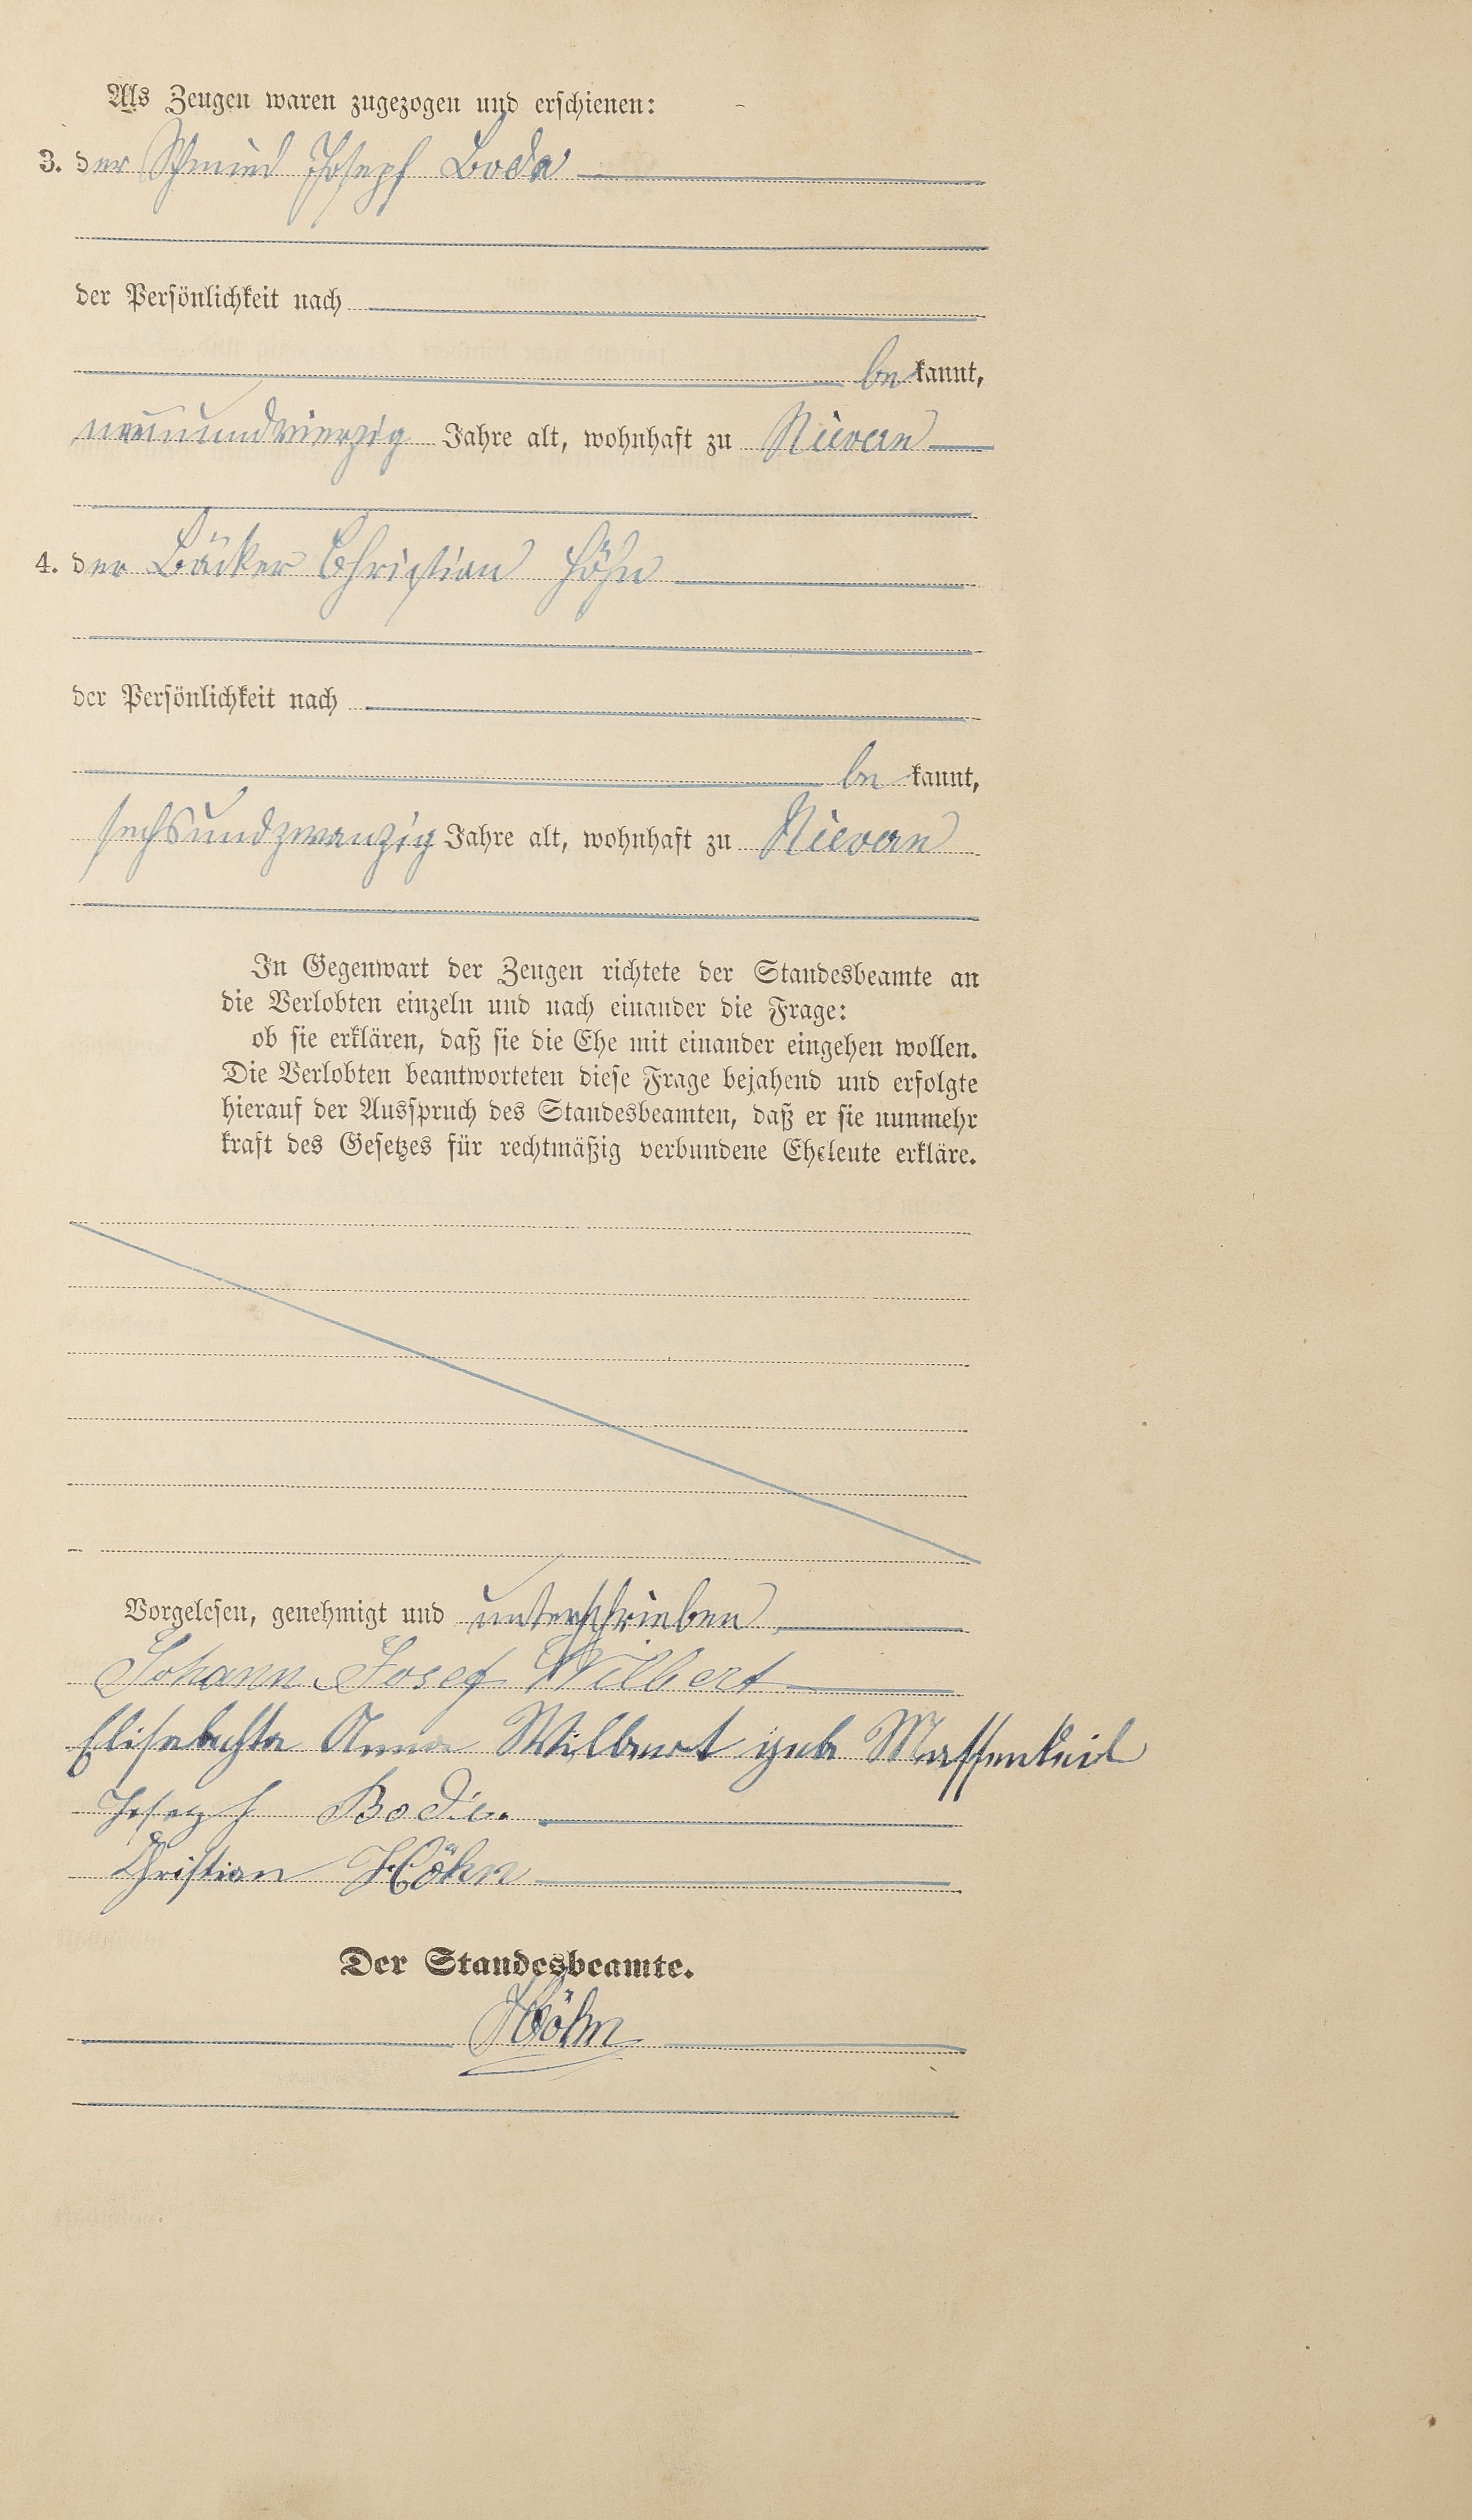 Als Zeugen waren zugezogen und erschienen:
3. der Schmied Joseph Bode
der Persönlichkeit nach
be kannt,
neunundvierzig Jahre alt, wohnhaft zu Nievern
4. der Bäcker Christian Höhn
der Persönlichkeit nach
be kannt,
sechsundzwanzig Jahre alt, wohnhaft zu Nievern
In Gegenwart der Zeugen richtete der Standesbeamte an
die Verlobten einzeln und nach einander die Frage:
ob sie erklären, daß sie die Ehe mit einander eingehen wollen.
Die Verlobten beantworteten diese Frage bejahend und erfolgte
hierauf der Ausspruch des Standesbeamten, daß er sie nunmehr
kraft des Gesetzes für rechtmäßig verbundene Eheleute erkläre.
Vorgelesen, genehmigt und unterschrieben
Johann Josef Wilbert
Anna Wilbert geb Massenkeil
Joseph Bode.
Christian Höhn
Der Standesbeamte.
Höhn